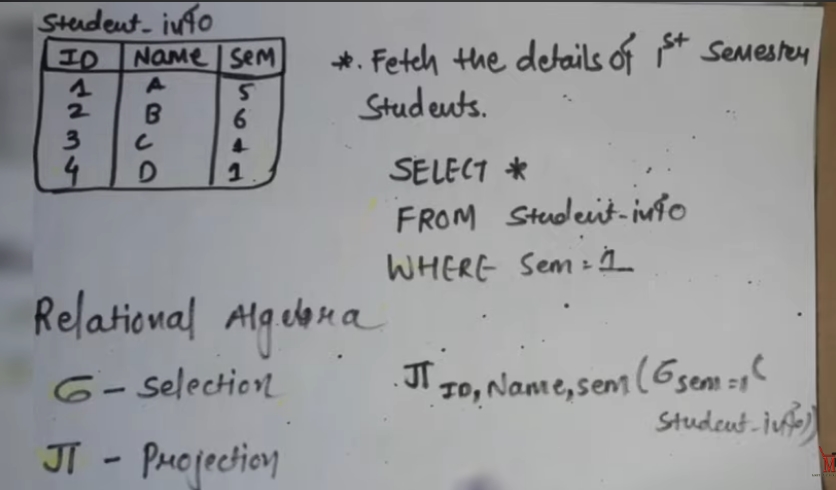 Student_info
ID NAME SEM
1 A 5
2 B 6
3 C 1
4 D 1
*. Fetch the details of 1st Semester
Students.
SELECT *
FROM Student_info
WHERE Sem = 1
Relational Algebra
σ - Selection
π - Projection
π ID, Name, sem (σ sem = 1 (
Student_info))